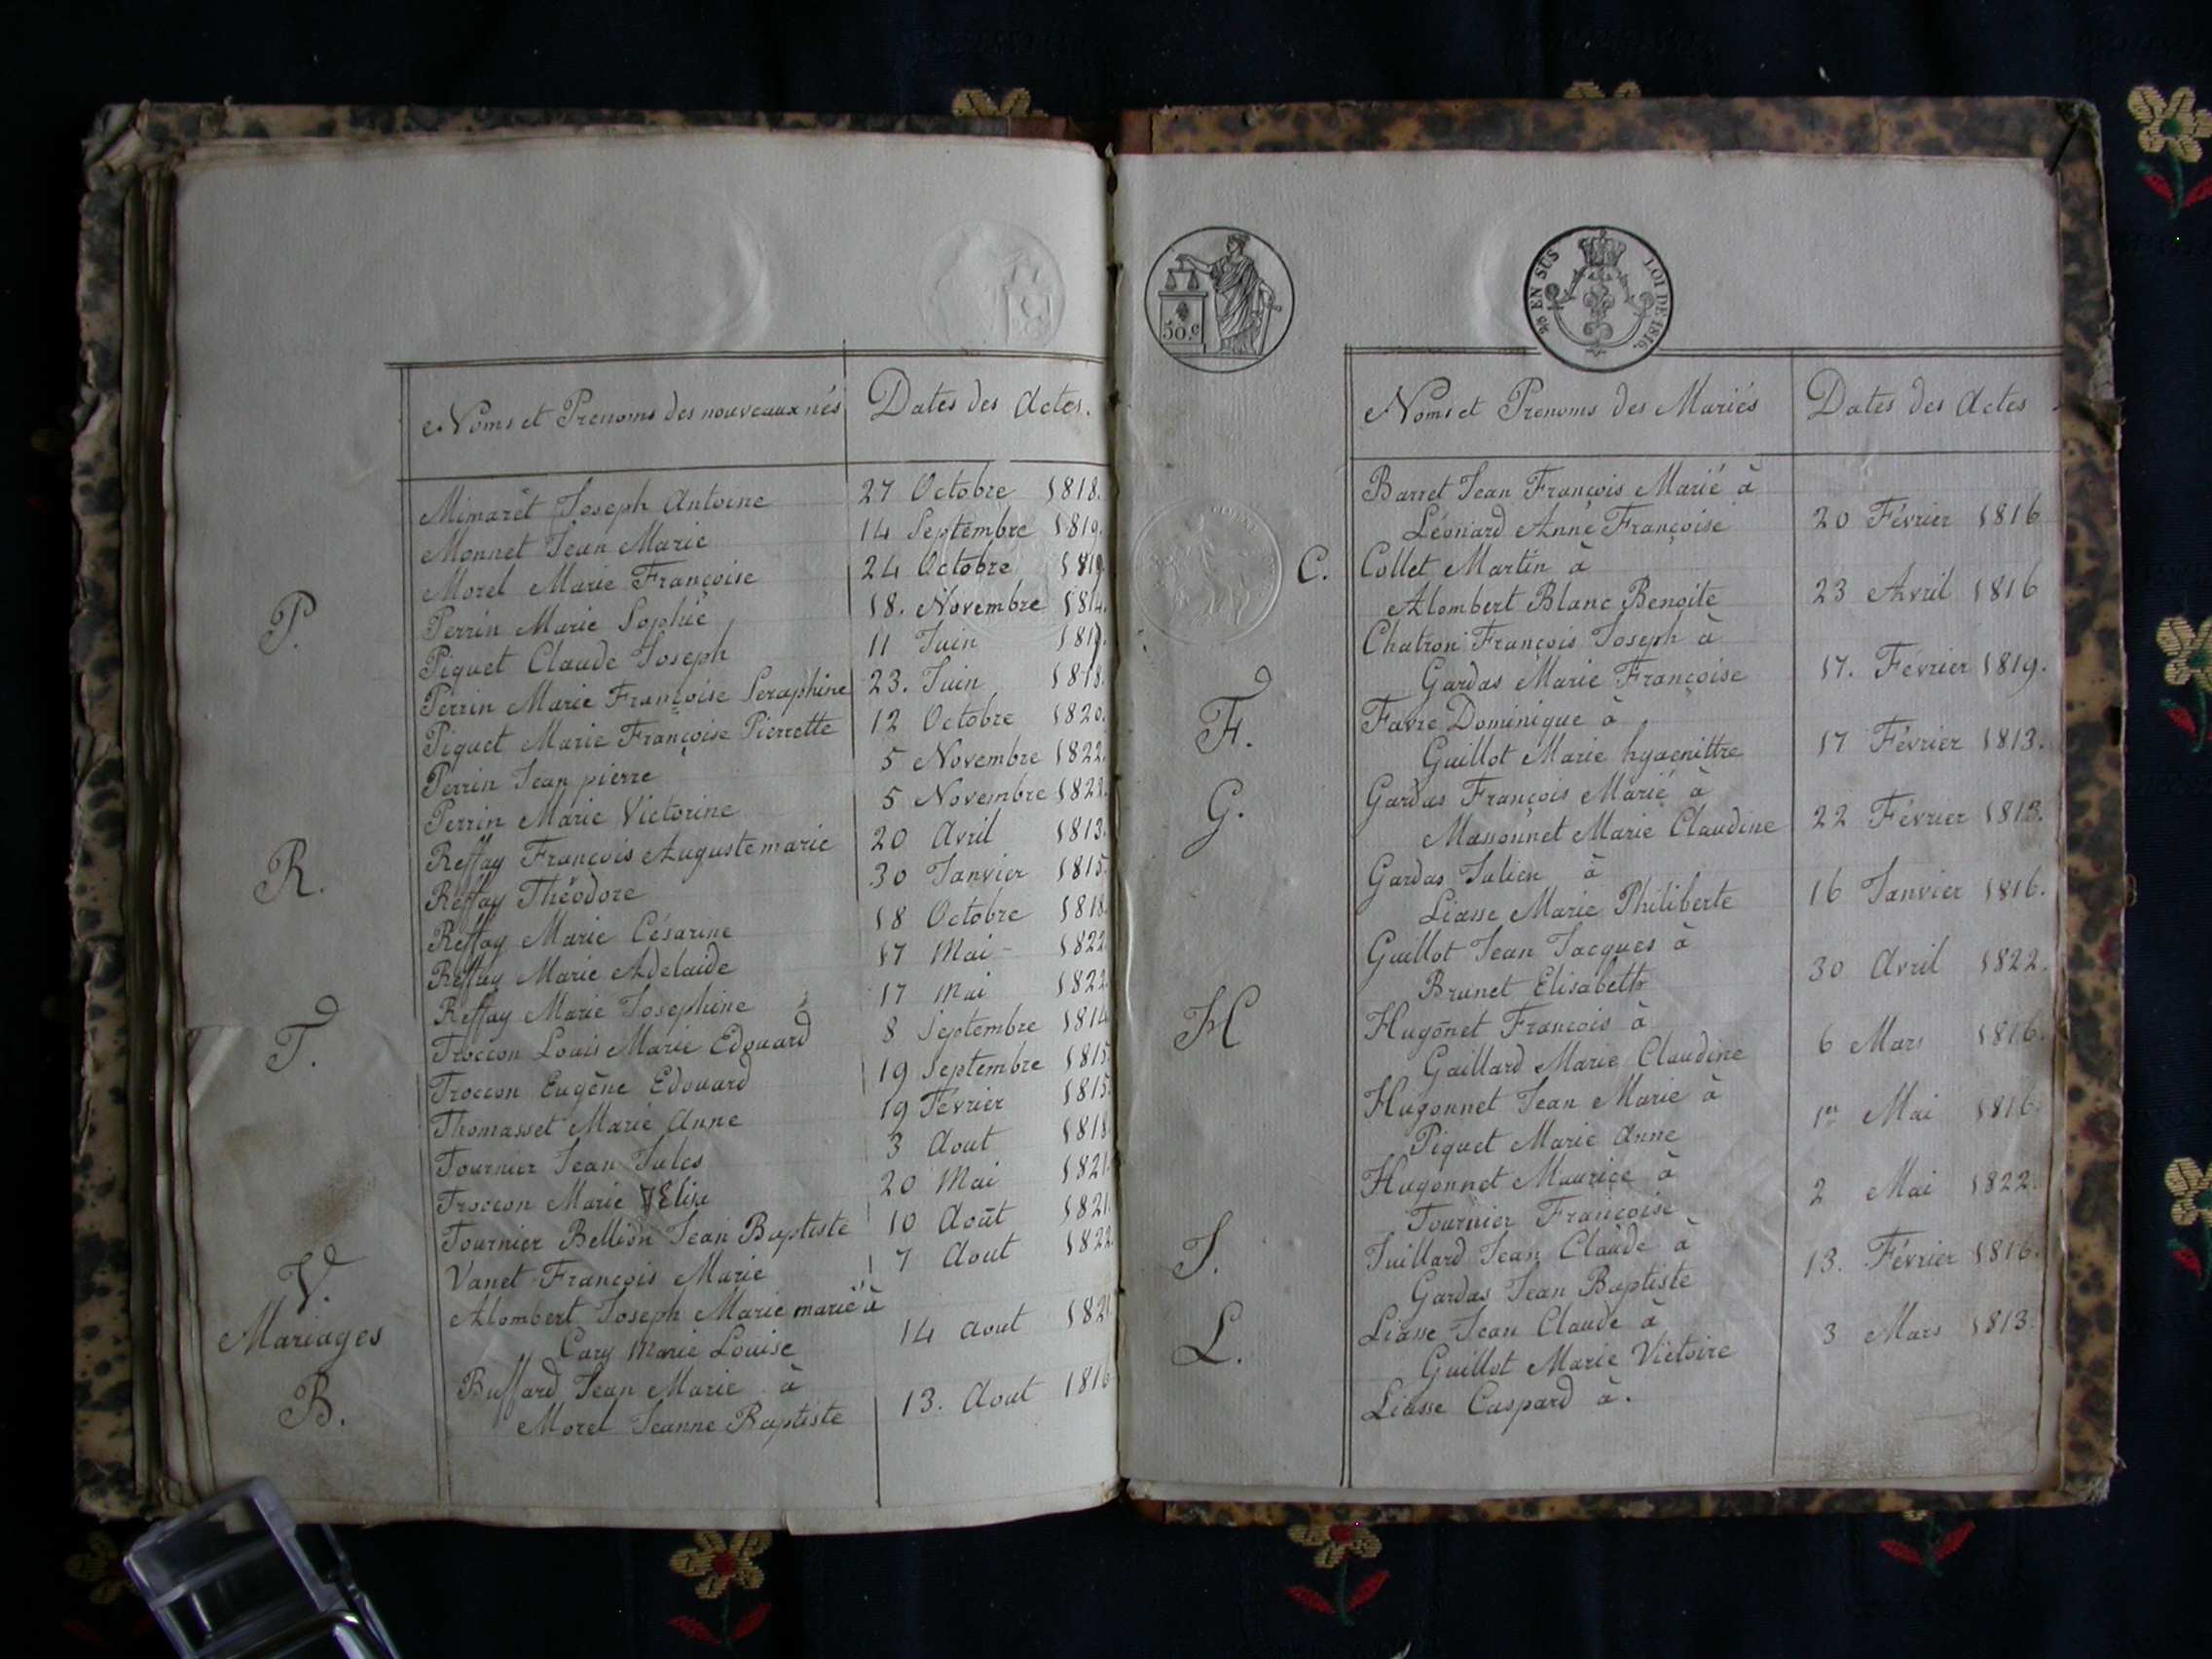 Noms et Prenoms des nouveaux nés Dates des Actes.
Mimarêt Joseph Antoine 27 Octobre 1818.
Monnet Jean Marie 14 Septembre 1819.
Morel Marie Françoise 24 Octobre 1819
P. Perrin Marie Sophie 18. Novembre 1814.
Piquet Claude Joseph 11 Juin 1819.
Perrin Marie Françoise Seraphine 23. Juin 1818.
Piquet Marie Françoise Pierrette 12 Octobre 1820.
Perrin Jean pierre 5 Novembre 1822.
Perrin Marie Victorine 5 Novembre 1822.
R. Reffay François Auguste marie 20 Avril 1813.
Reffay Théodore 30 Janvier 1815.
Reffay Marie Césarine 18 Octobre 1818.
Reffay Marie Adelaide 17 Mai 1822
Reffay Marie Josephine 17 Mai 1822
T. Troccon Louis Marie Edouard 8 Septembre 1814
Troccon Eugêne Edouard 19 Septembre 1815
Thomasset Marie Anne 19 Février 1815.
Tournier Jean Jules 3 Aout 1818
Troccon Marie Elisa 20 Mai 1821.
Tournier Bellion Jean Baptiste 10 Août 1821.
V. Vanet François Marie 7 Aout 1822.
Mariages Alombert Joseph Marie marié à
Cary Marie Louise 14 Aout 1821
B. Buffard Jean Marie à
Morel Jeanne Baptiste 13. Aout 1816
50. c
EN SUS LOI DE 1816.
Noms et Prenoms des Mariés Dates des Actes
Barret Jean François Marié à
Léonard Anne Françoise 20 Février 1816
C. Collet Martin à
Alombert Blanc Benoite 23 Avril 1816
Chatron François Joseph à
Gardas Marie Françoise 17. Février 1819.
F. Favre Dominique à
Guillot Marie hyacnittre 17 Février 1813.
G. Gardas François Marié à
Massonnet Marie Claudine 22 Février 1813.
Gardas Julien à
Liasse Marie Philiberte 16 Janvier 1816.
Guillot Jean Jacques à
Brunet Elisabeth 30 Avril 1822.
H Hugonet François à
Gaillard Marie Claudine 6 Mars 1816.
Hugonnet Jean Marie à
Piquet Marie Anne 1er Mai 1816.
Hugonnet Maurice à
Tournier Françoise 2 Mai 1822.
J. Juillard Jean Claude à
Gardas Jean Baptiste 13. Février 1816.
L. Liasse Jean Claude à
Guillot Marie Victoire 3 Mars 1813.
Liasse Caspard à.